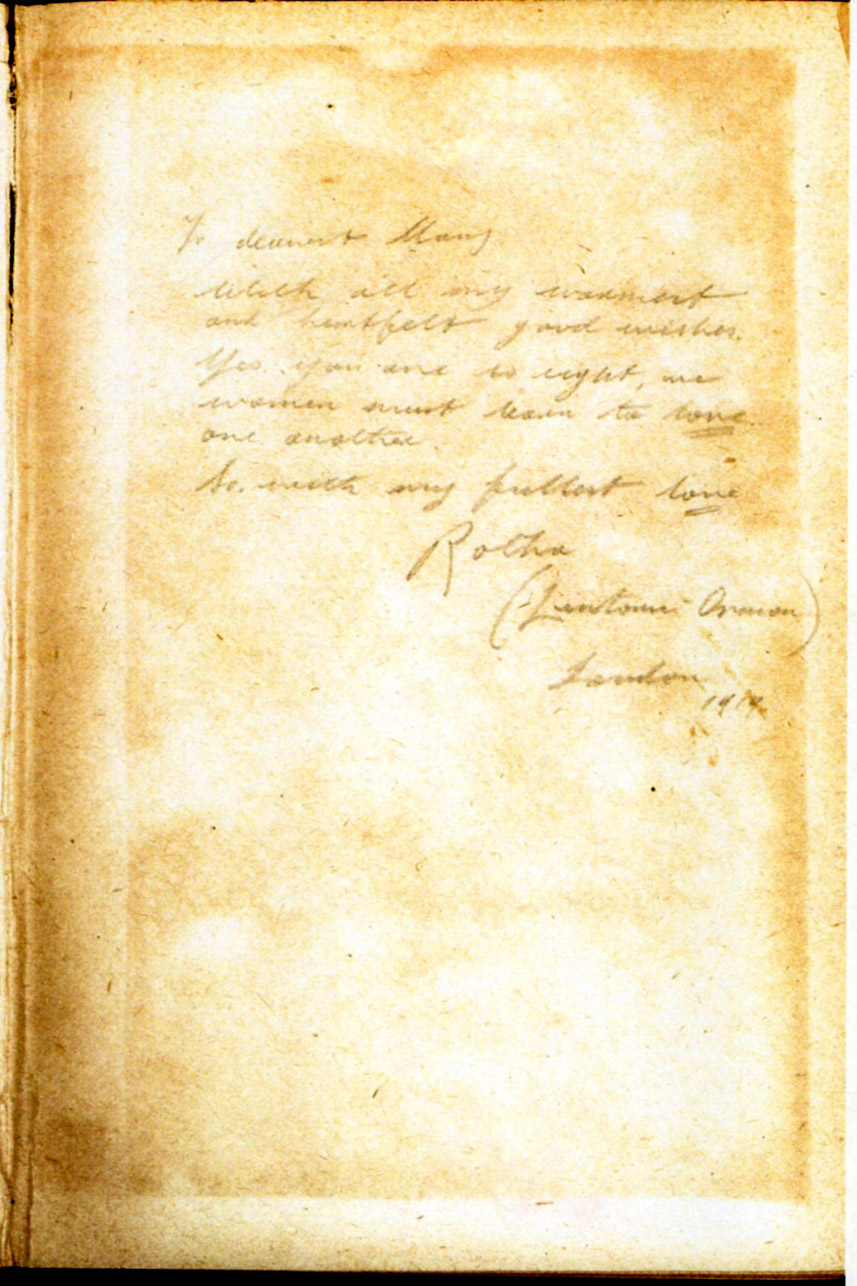 To dearest Mary
With all my warmest
and heartfelt good wishes.
Yes you are so right, we
women must learn to love
one another.
So, with my fullest love
Rotha
(Lintorn Orman)
London